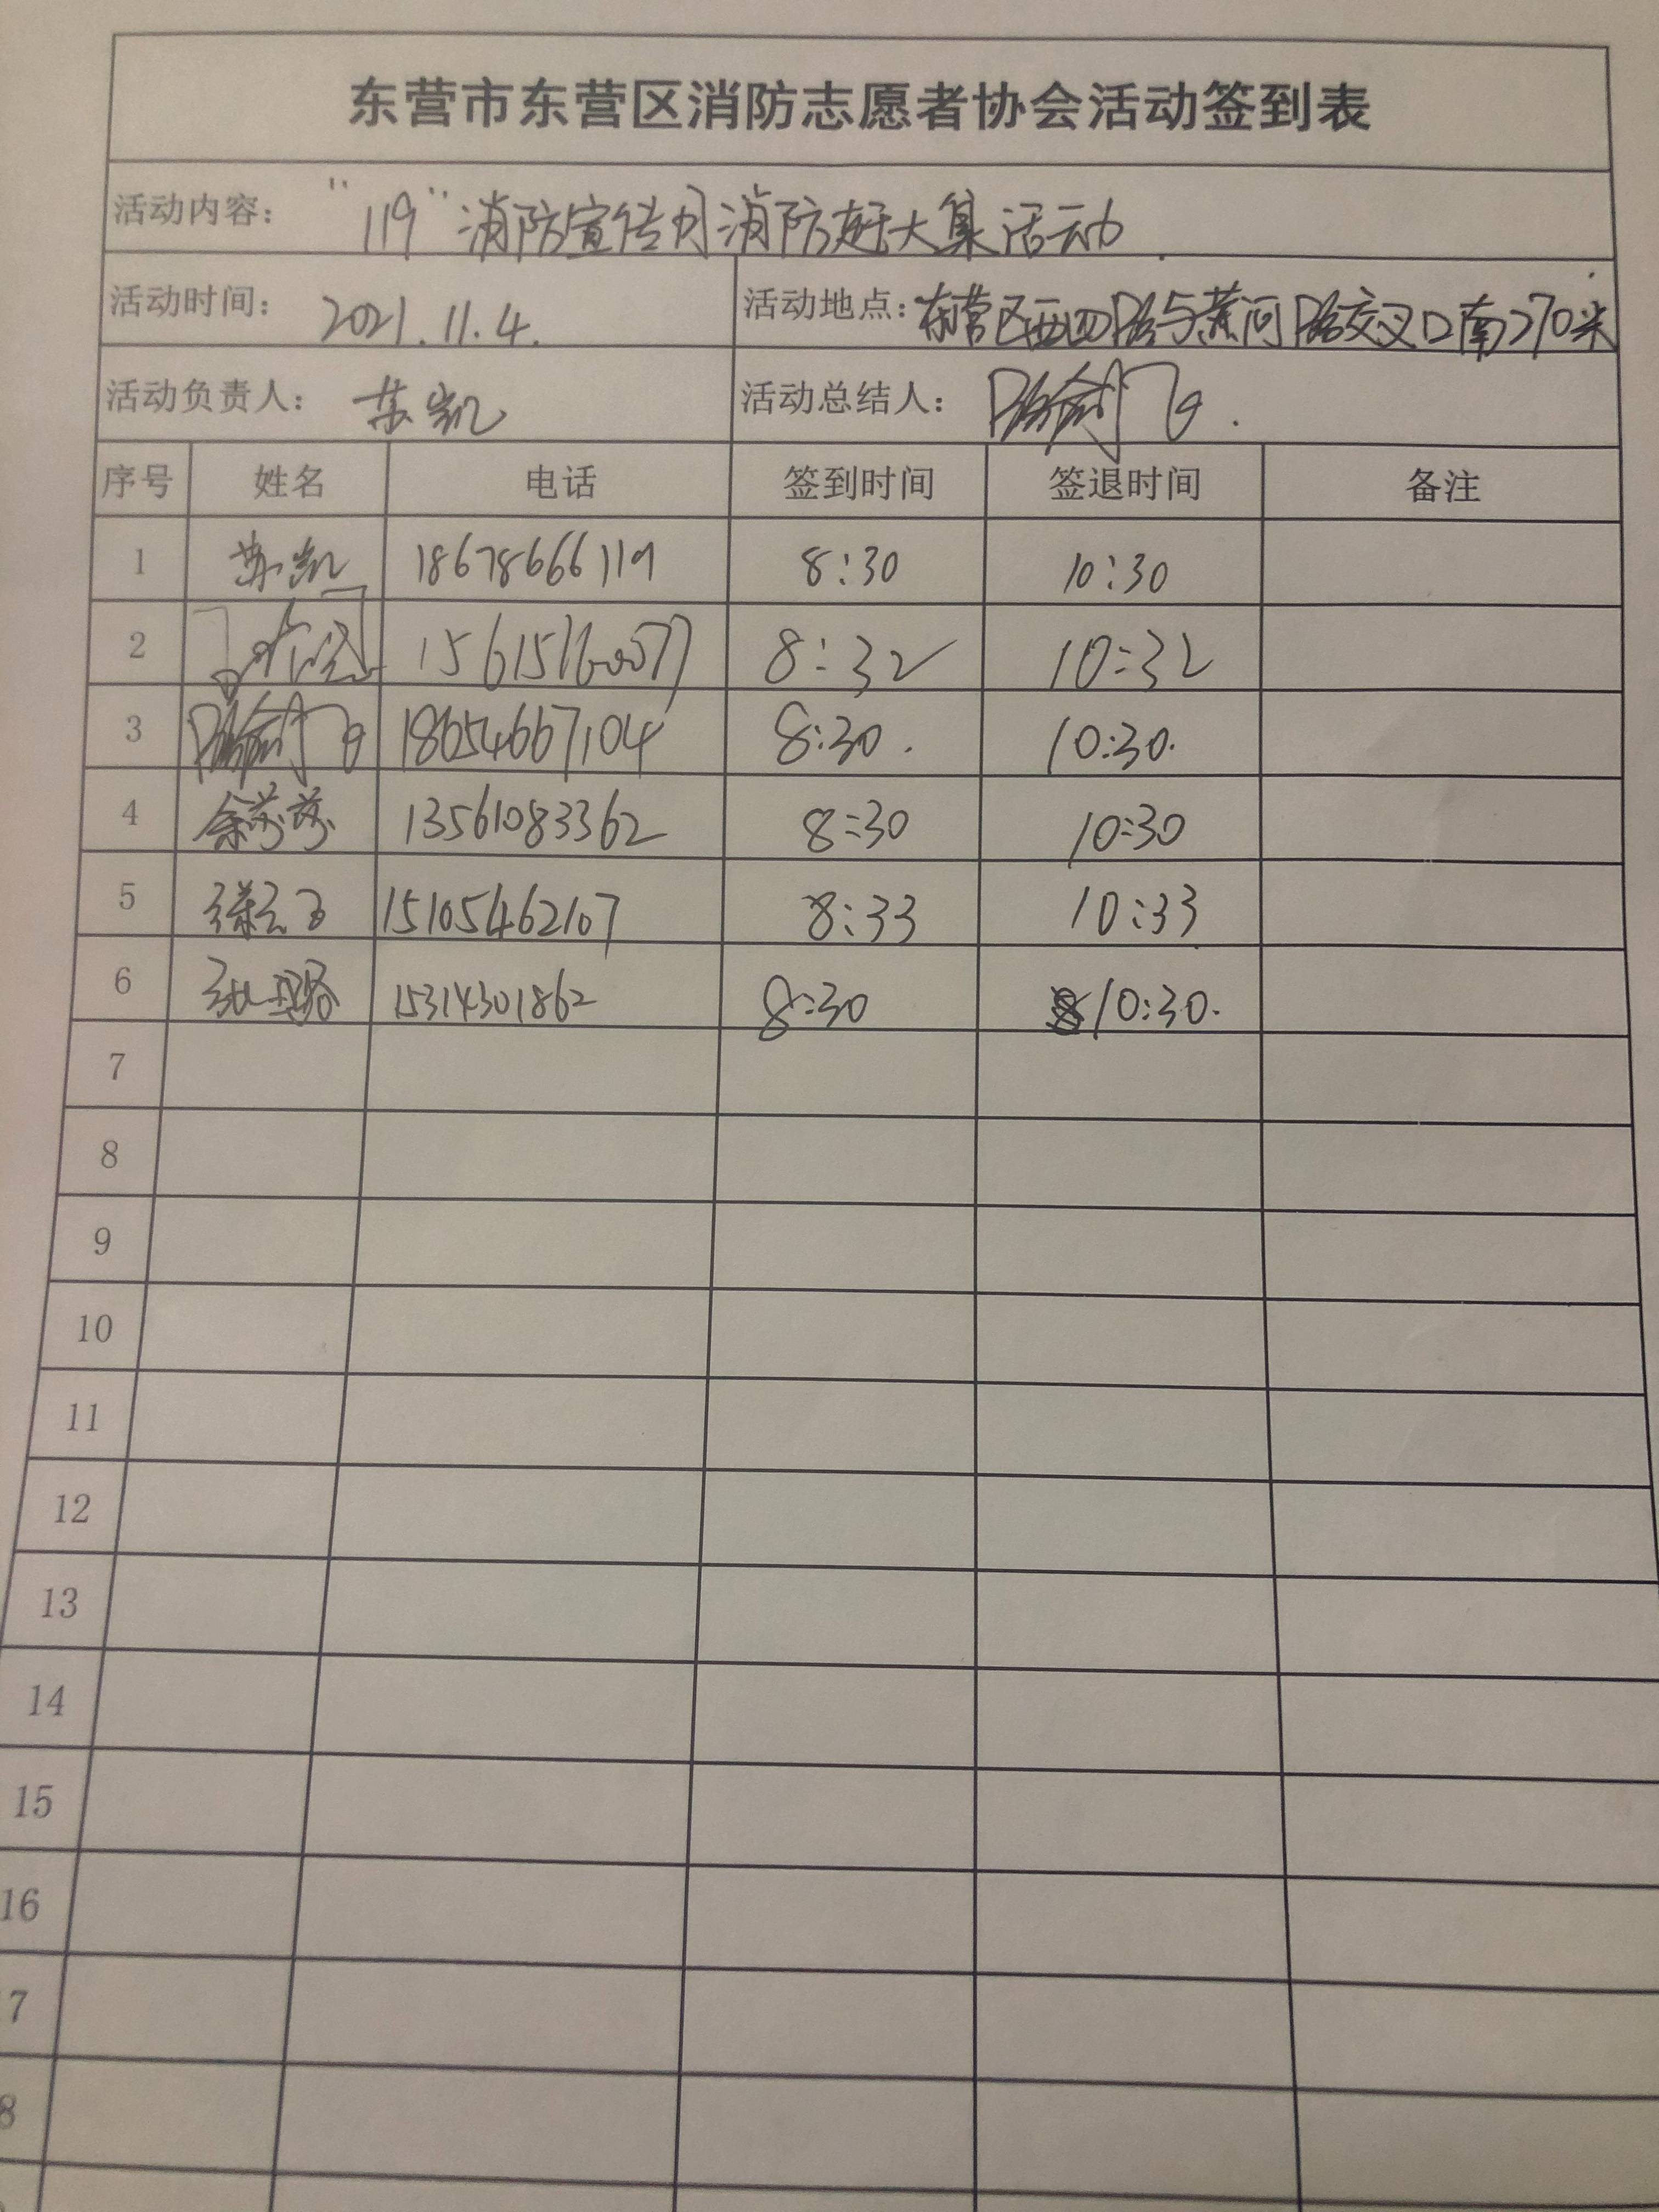 东营市东营区消防志愿者协会活动签到表
活动内容： "119"消防宣传月消防赶大集活动
活动时间： 2021.11.4. 活动地点：东营区西四路与黄河路交叉口南270米
活动负责人： 苏凯 活动总结人：
序号 姓名 电话 签到时间 签退时间 备注
1 苏凯 18678666119 8:30 10:30
2 8:32 10:32
3 18654667104 8:30. 10:30.
4 余芬芬 13561083362 8:30 10:30
5 15105462107 8:33 10:33
6 张璐 15314301862 8:30 10:30.
7
8
9
10
11
12
13
14
15
16
7
8